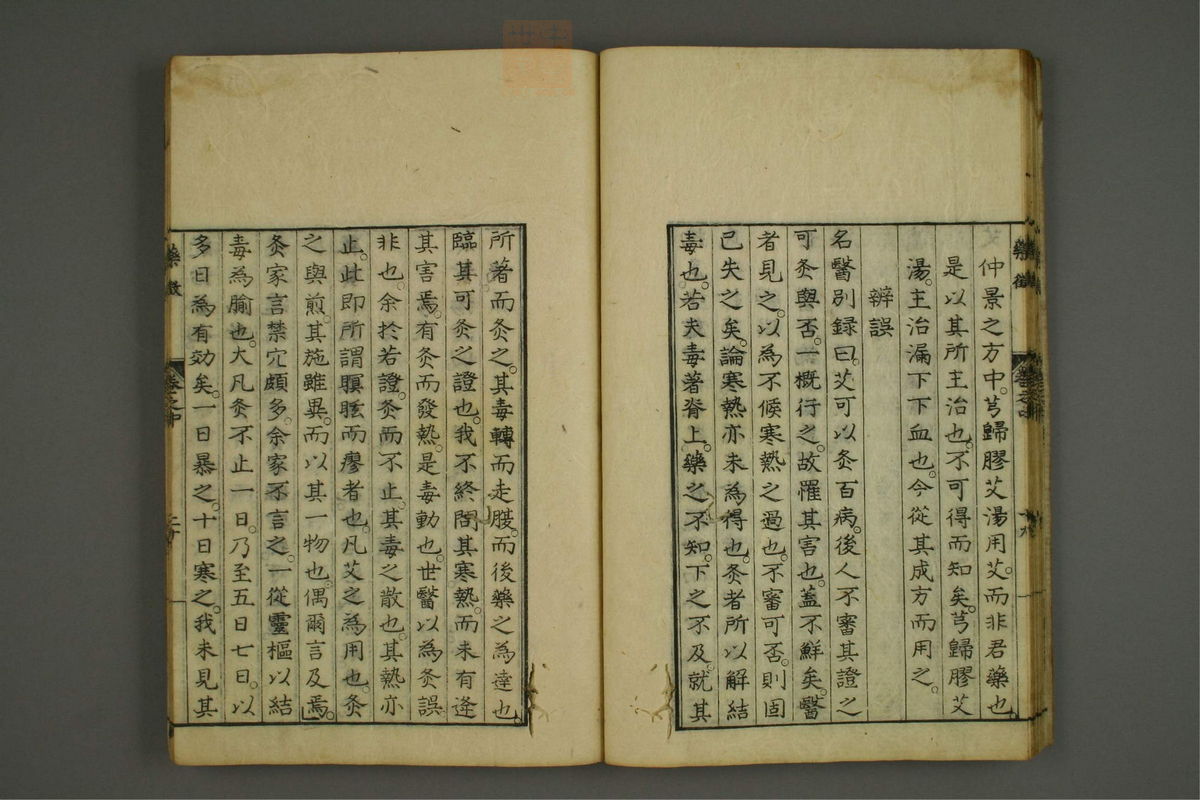 仲景之方中。芎歸膠艾湯用艾。而非君藥也。
是以其所主治也。不可得而知矣。芎歸膠艾
湯。主治漏下下血也。今從其成方而用之。
辨誤
名醫別録曰。艾可以灸百病。後人不審其證之
可灸與否。一概行之。故罹其害也。蓋不鮮矣。醫
者見之。以為不候寒熱之過也。不審可否。則固
已失之矣。論寒熱亦未為得也。灸者所以解結
毒也。若夫毒著脊上。藥之不知。下之不及。就其
所著而灸之。其毒轉而走腹。而後藥之為達也。
臨其可灸之證也。我不終問其寒熱。而未有逢
其害焉。有灸而發熱。是毒動也。世醫以為灸誤
非也。余於若證。灸而不止。其毒之散也。其熱亦
止。此即所謂瞑眩而瘳者也。凡艾之為用也。灸
之與煎。其施雖異。而以其一物也。偶爾言及焉。
灸家言禁穴頗多。余家不言之。一從靈樞以結
毒為腧也。大凡灸不止一日。乃至五日七日。以
多日為有効矣。一日暴之。十日寒之。我未見其
藥徵
卷之中